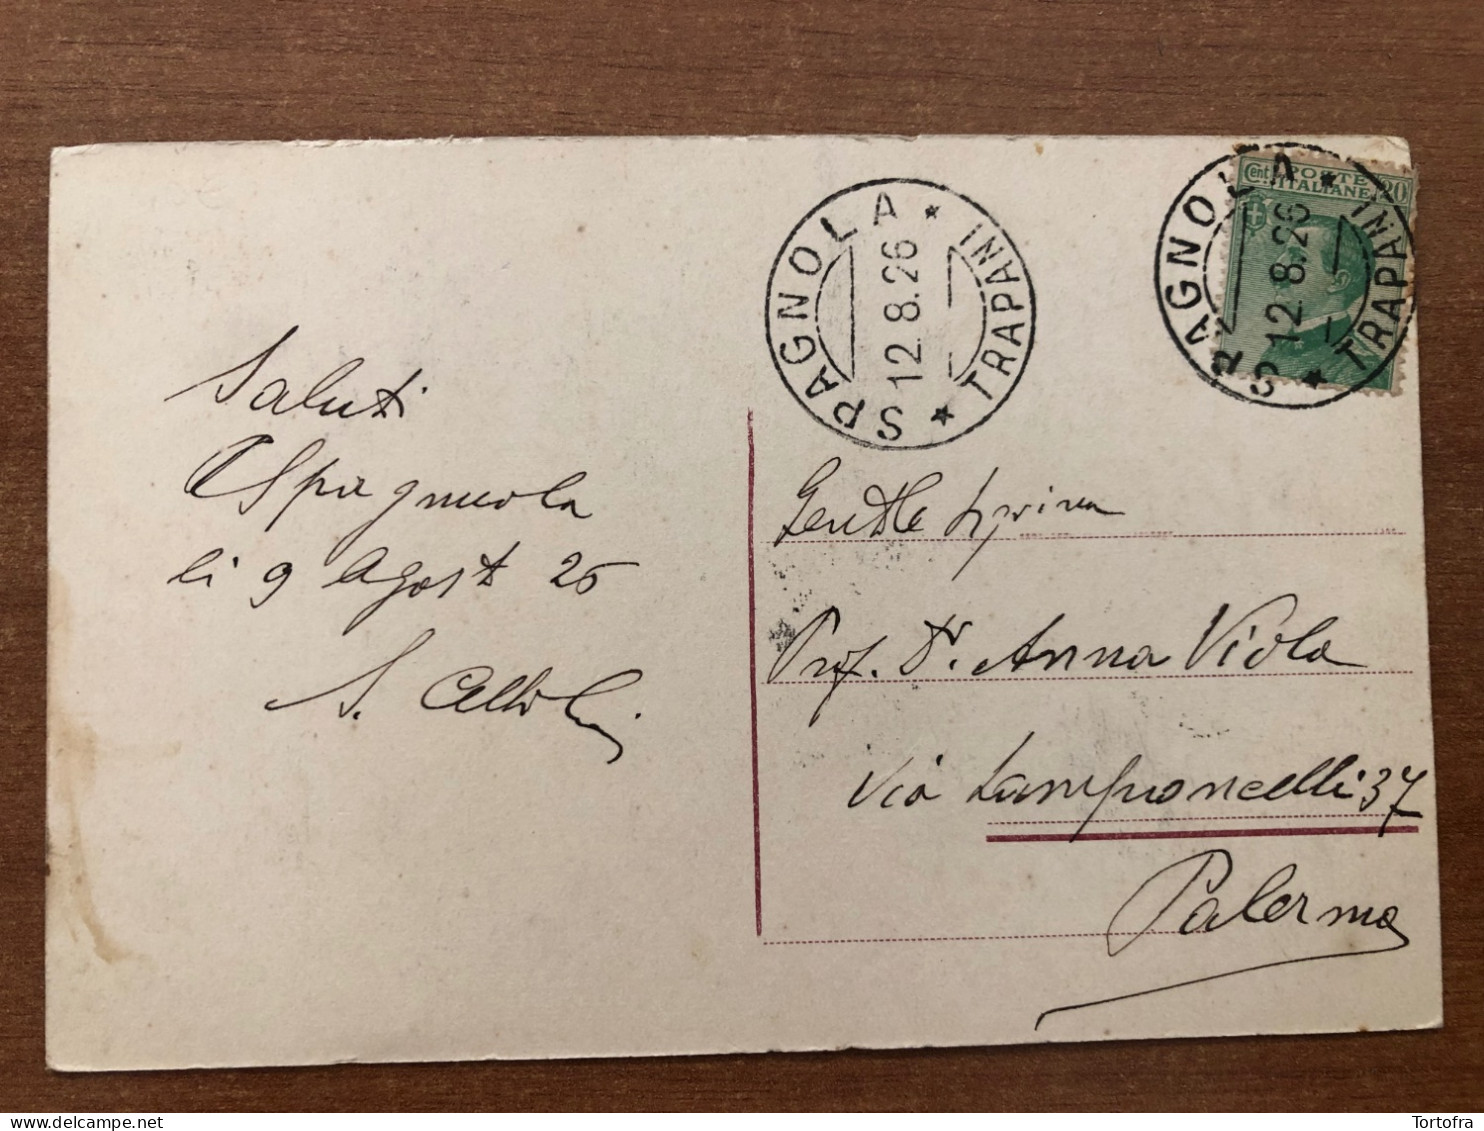 Saluti
Spagnuola
li 9 Agost 26
S.
SPAGNOLA * TRAPANI *
12.8.26
SPAGNOLA * TRAPANI *
12.8.26
Cent POSTE 20
ITALIANE
Gentile
Prof. Dr. Anna Viola
Via Lamponcelli 37
Palermo
Tortofra